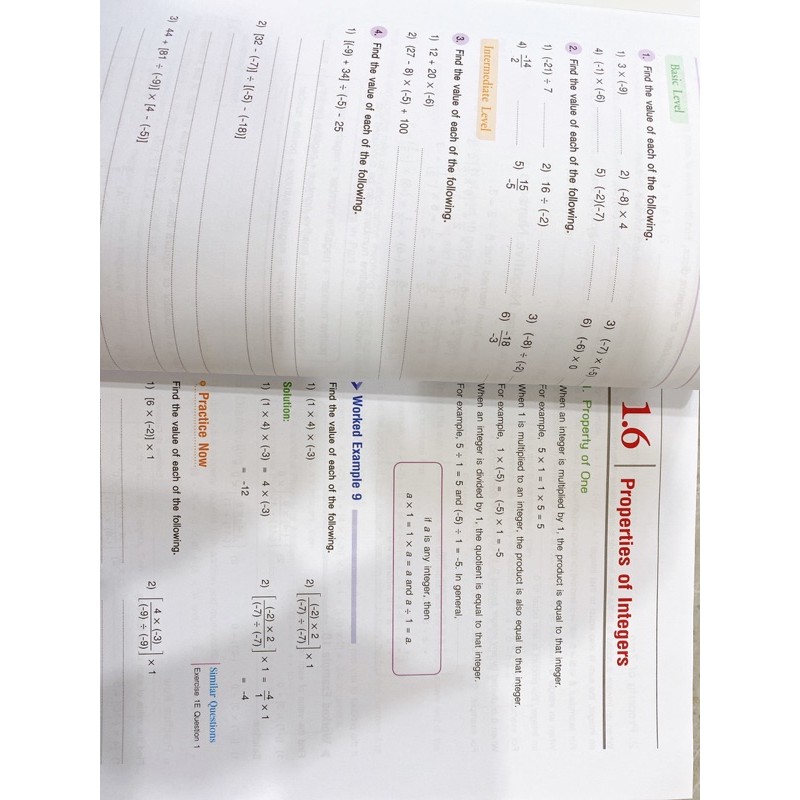 Basic Level
1. Find the value of each of the following.
1) 3 × (-9) 2) (-8) × 4 3) (-7) × (-3)
4) (-1) × (-6) 5) (-2)(-7) 6) (-6) × 0
2. Find the value of each of the following.
1) (-21) ÷ 7 2) 16 ÷ (-2) 3) (-8) ÷ (-2)
4) -14/2 5) 15/-5 6) -18/-3
Intermediate Level
3. Find the value of each of the following.
1) 12 + 20 × (-6)
2) (27 - 8) × (-5) + 100
4. Find the value of each of the following.
1) [(-9) + 34] ÷ (-5) - 25
2) [32 - (-7)] ÷ [(-5) - (-18)]
3) 44 + [81 ÷ (-9)] × [4 - (-5)]
1.6 Properties of Integers
1. Property of One
When an integer is multiplied by 1, the product is equal to that integer.
For example, 5 × 1 = 1 × 5 = 5
When 1 is multiplied to an integer, the product is also equal to that integer.
For example, 1 × (-5) = (-5) × 1 = -5
When an integer is divided by 1, the quotient is equal to that integer.
For example, 5 ÷ 1 = 5 and (-5) ÷ 1 = -5. In general,
if a is any integer, then
a × 1 = 1 × a = a and a ÷ 1 = a.
Worked Example 9
Find the value of each of the following.
1) (1 × 4) × (-3) 2) [(-2) × 2 / (-7) ÷ (-7)] × 1
Solution:
1) (1 × 4) × (-3) = 4 × (-3) 2) [(-2) × 2 / (-7) ÷ (-7)] × 1 = -4/1 × 1
= -12 = -4
Practice Now
Similar Questions
Exercise 1E Question 1
Find the value of each of the following.
1) [6 × (-2)] × 1 2) [4 × (-3) / (-9) ÷ (-9)] × 1